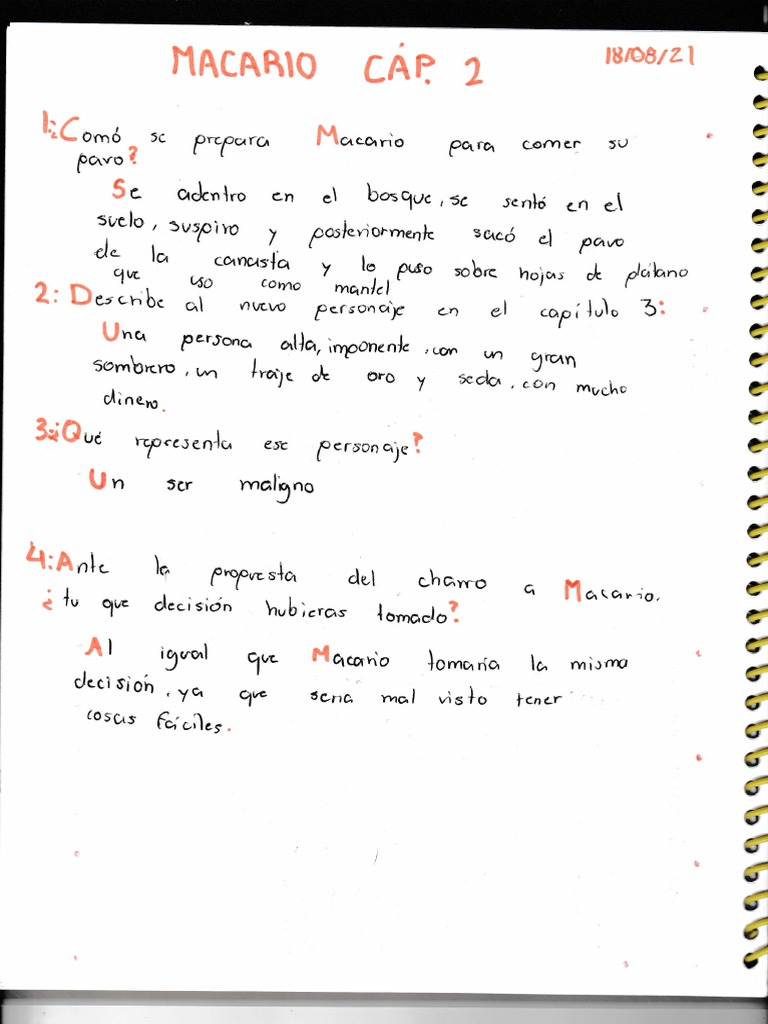 MACARIO CÁP. 2
18/08/21
1:¿Comó se prepara Macario para comer su
pavo?
Se adentro en el bosque, se sentó en el
suelo, suspiro y posteriormente sacó el pavo
de la canasta y lo puso sobre hojas de plátano
que uso como mantel
2: Describe al nuevo personaje en el capítulo 3:
Una persona alta, imponente, con un gran
sombrero, un traje de oro y seda, con mucho
dinero.
3:¿Qué representa ese personaje?
Un ser maligno
4: Ante la propuesta del charro a Macario.
¿tu que decisión hubieras tomado?
Al igual que Macario tomaría la misma
decisión, ya que seria mal visto tener
cosas fáciles.